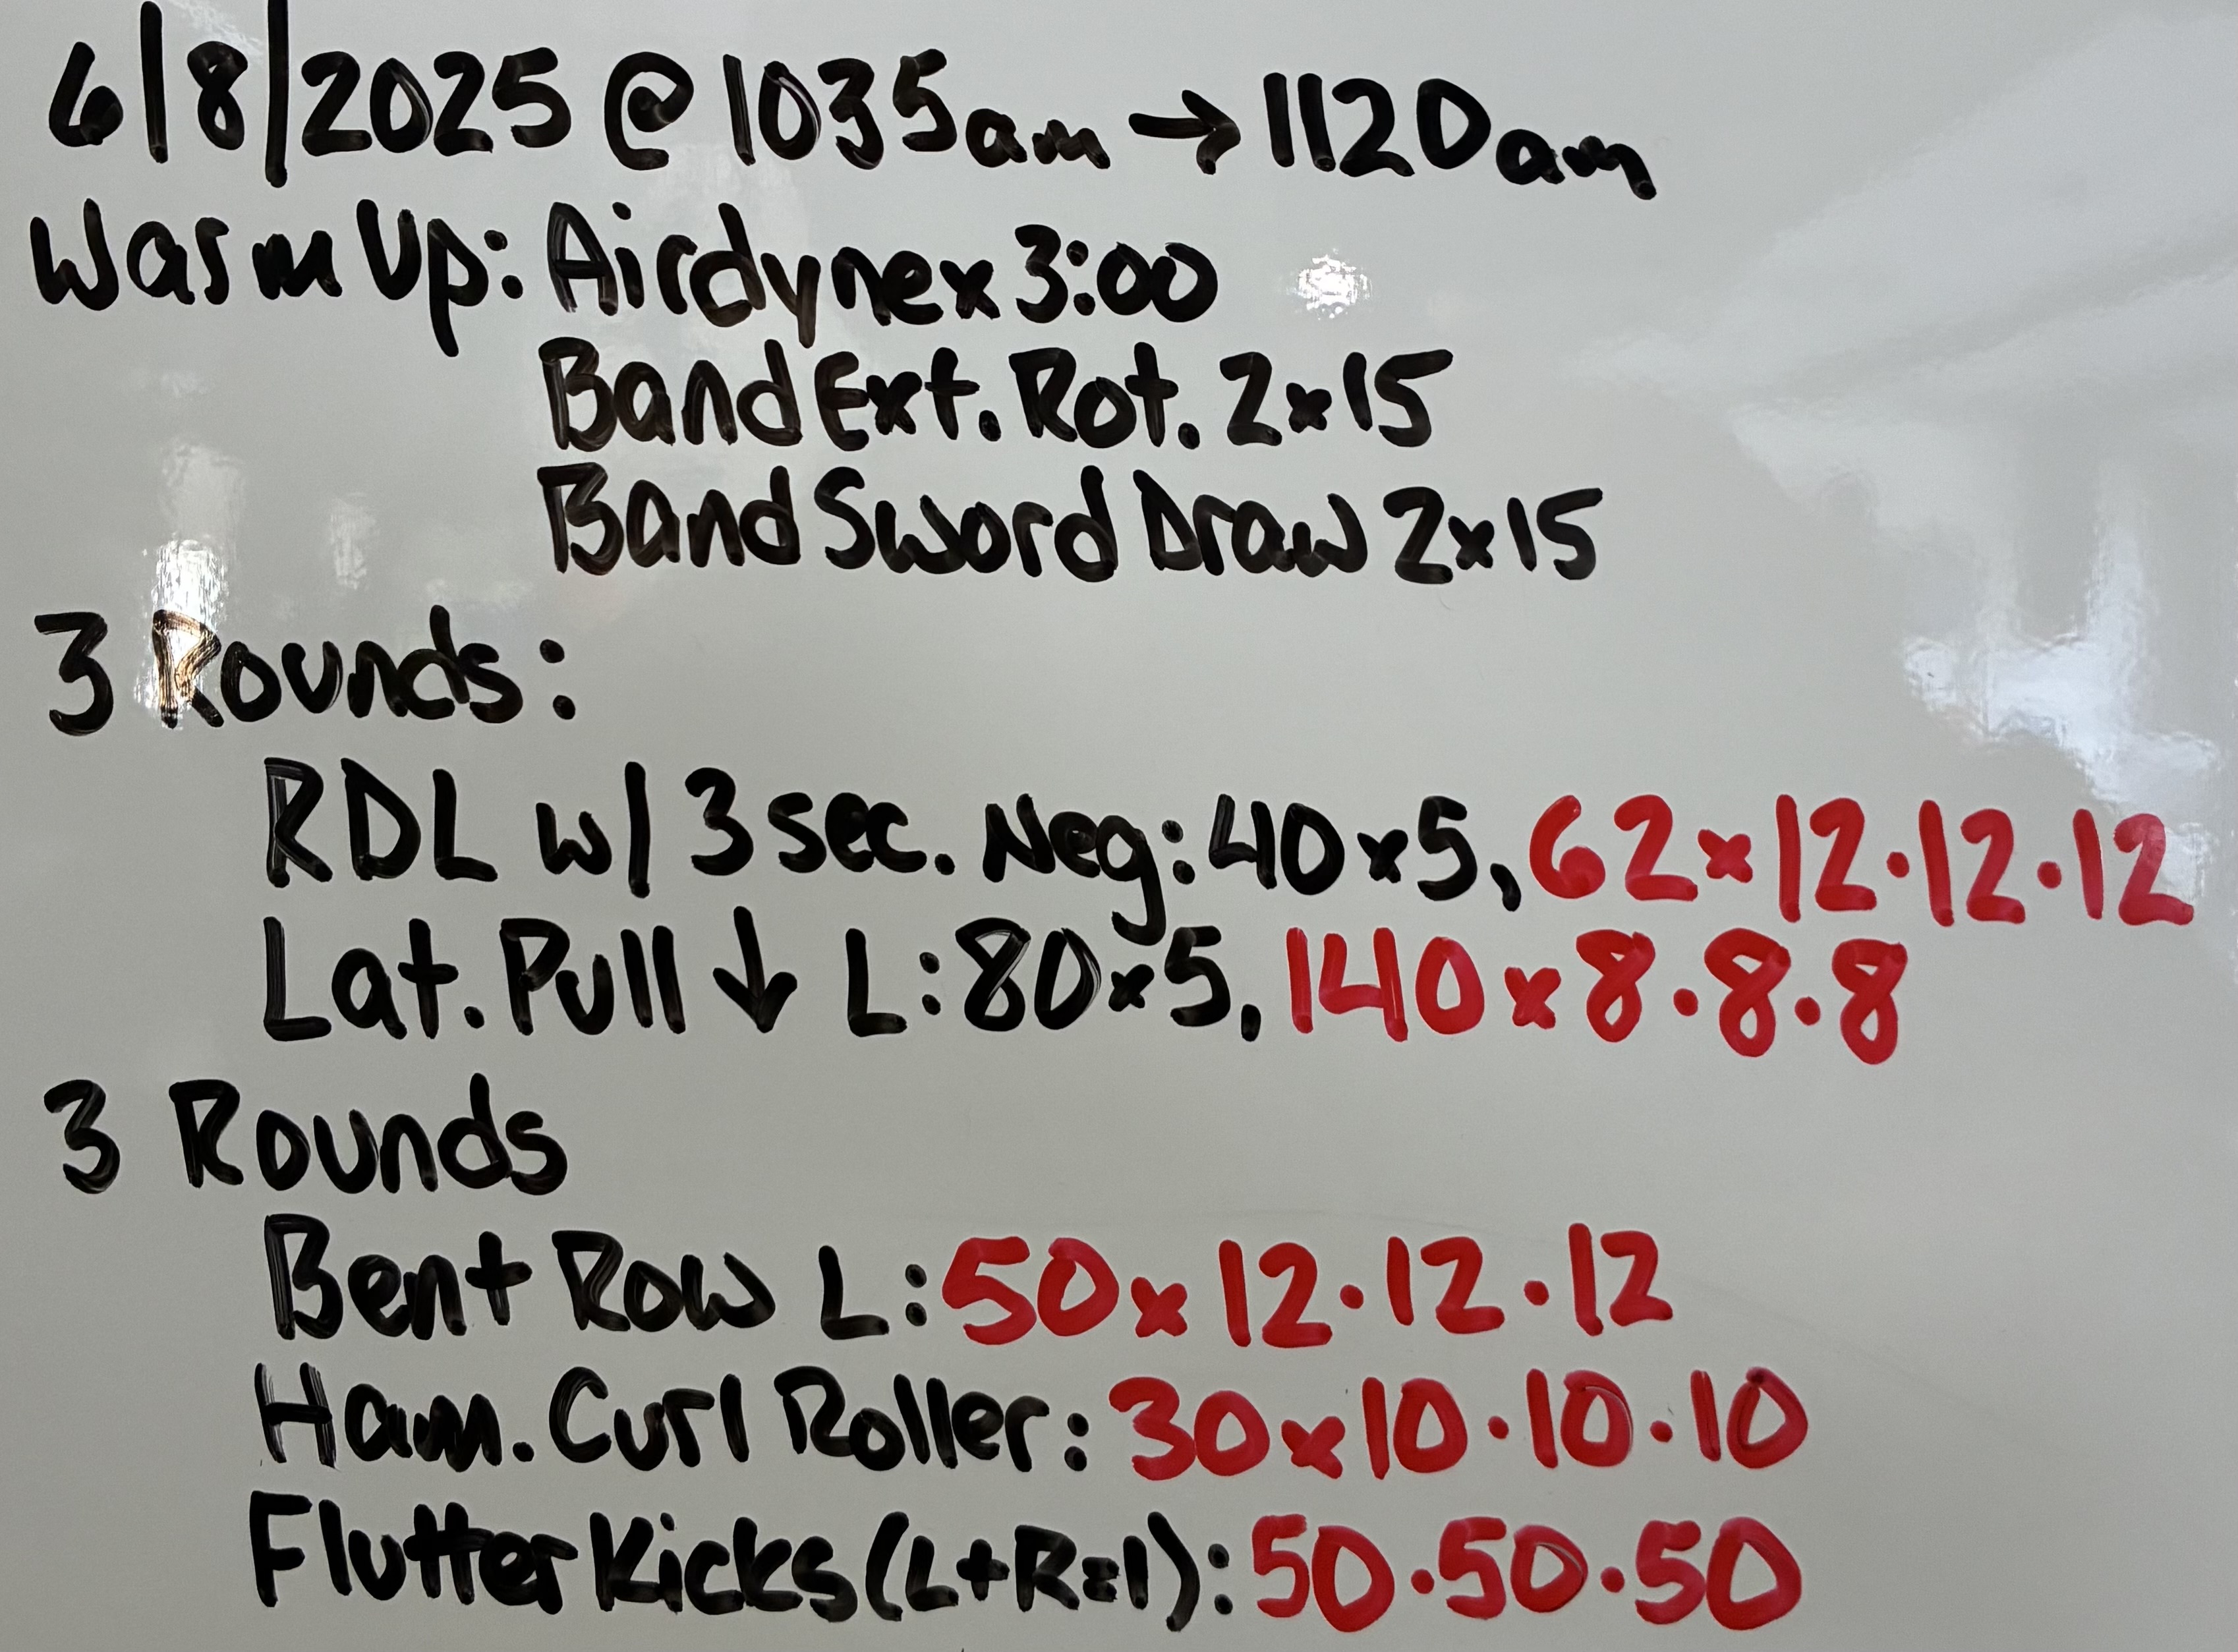 6/8/2025 @ 1035am → 1120am
Warm Up: Airdyne x 3:00
Band Ext. Rot. 2x15
Band Sword Draw 2x15
3 Rounds:
RDL w/ 3 sec. Neg: 40x5, 62x12·12·12
Lat. Pull ↓ L: 80x5, 140x8·8·8
3 Rounds
Bent Row L: 50x12·12·12
Ham. Curl Roller: 30x10·10·10
Flutter Kicks (L+R=1): 50·50·50